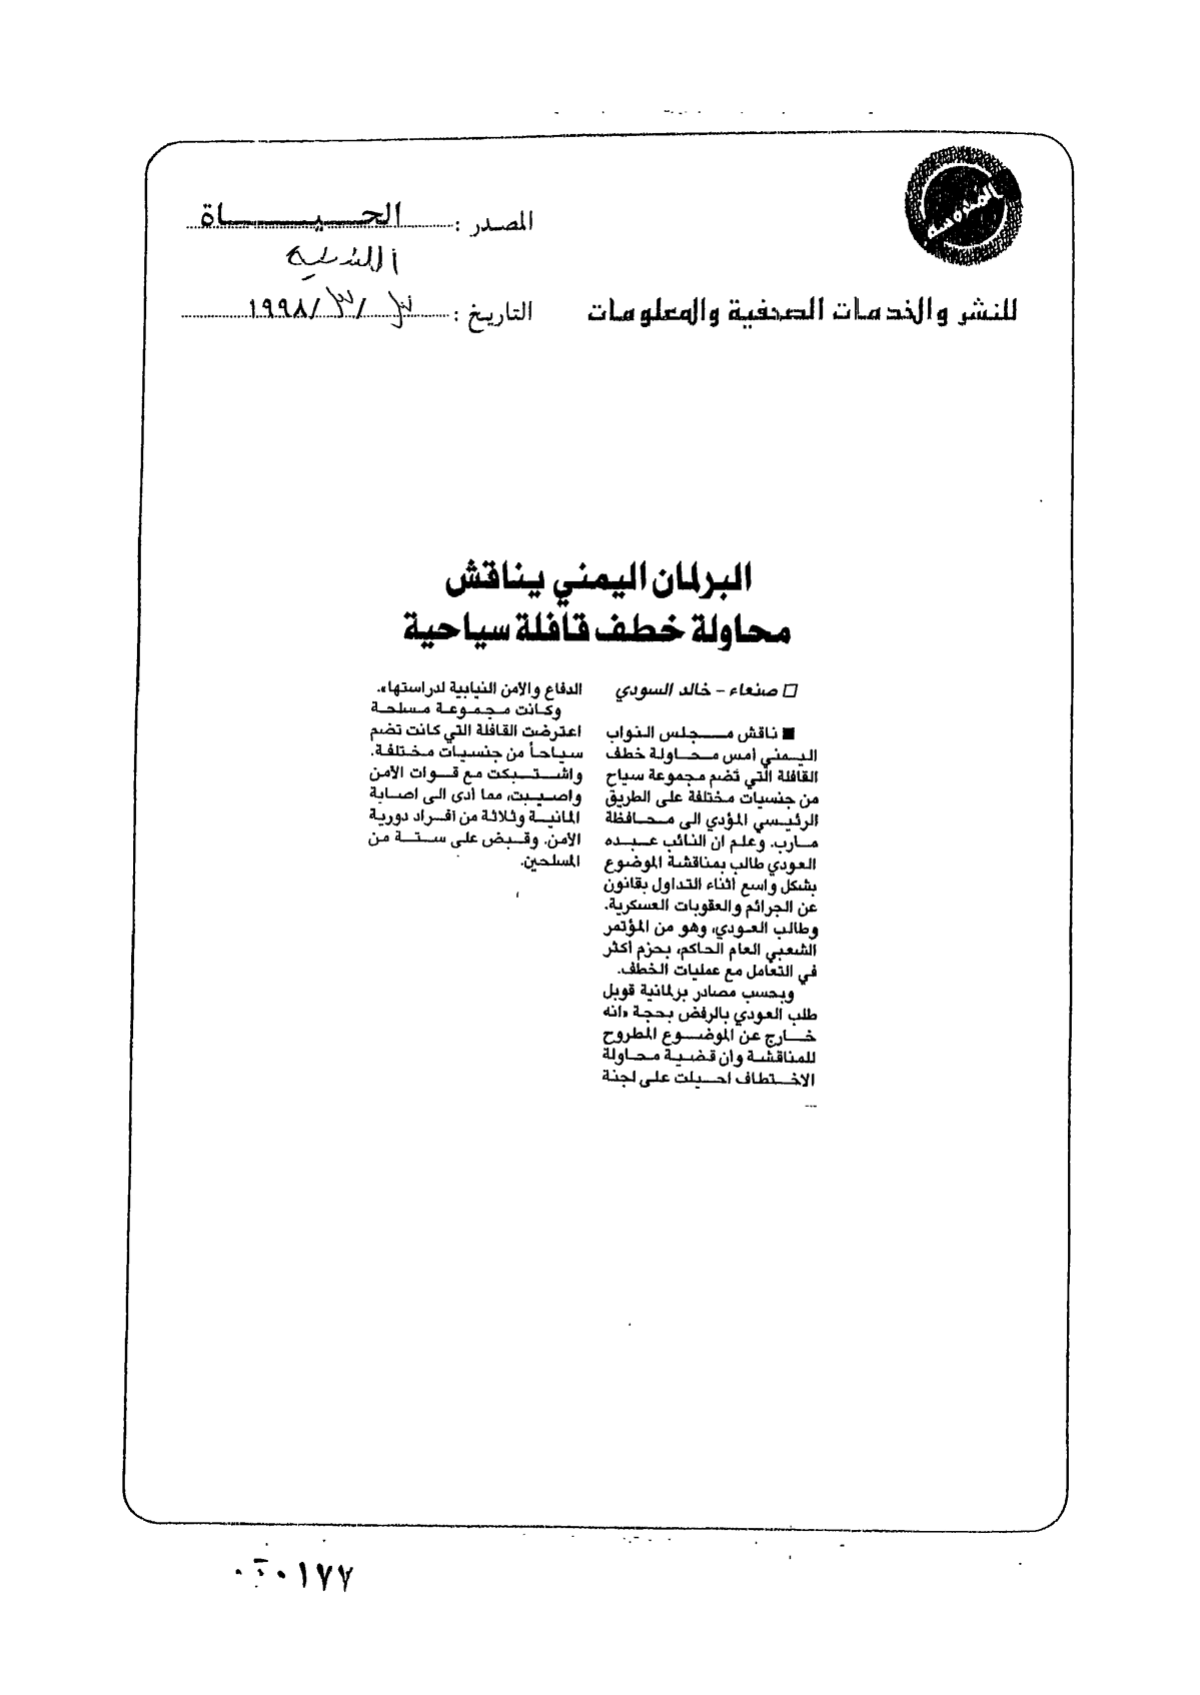 المحروسة
المصدر : الحيـــــاة
اللندنية
للنشر والخدمات الصحفية والمعلومات
التاريخ : ٣/٣/١٩٩٨
البرلمان اليمني يناقش
محاولة خطف قافلة سياحية
□ صنعاء - خالد السودي
■ ناقش مجلس النواب
اليمني أمس محاولة خطف
القافلة التي تضم مجموعة سياح
من جنسيات مختلفة على الطريق
الرئيسي المؤدي الى محافظة
مارب. وعلم ان النائب عبده
العودي طالب بمناقشة الموضوع
بشكل واسع اثناء التداول بقانون
عن الجرائم والعقوبات العسكرية.
وطالب العودي، وهو من المؤتمر
الشعبي العام الحاكم، بحزم أكثر
في التعامل مع عمليات الخطف.
وبحسب مصادر برلمانية قوبل
طلب العودي بالرفض بحجة «انه
خارج عن الموضوع المطروح
للمناقشة وان قضية محاولة
الاختطاف احيلت على لجنة
الدفاع والأمن النيابية لدراستها».
وكانت مجموعة مسلحة
اعترضت القافلة التي كانت تضم
سياحاً من جنسيات مختلفة.
واشتبكت مع قوات الأمن
واصيبت، مما أدى الى اصابة
المانية وثلاثة من أفراد دورية
الأمن. وقبض على ستة من
المسلحين.
١٧٧